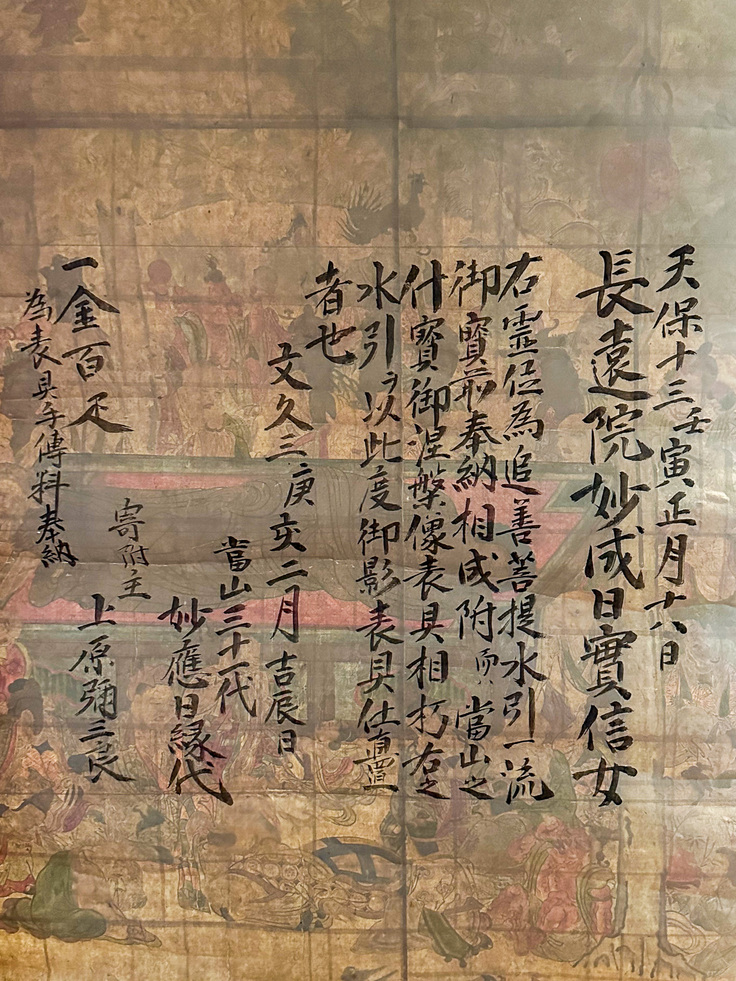 天保十三壬寅正月十八日
長遠院妙成日實信女
右霊位為追善菩提水引一流
御寳前奉納相成附而當山之
什寳御涅槃像表具相朽右之
水引ヲ以此度御影表具仕置
者也
文久三庚亥二月吉辰日
當山三十一代
妙應日縁代
寄附主
上原彌三良
一金百疋
為表具手傳料奉納